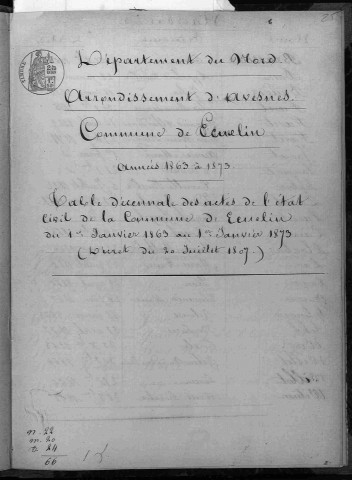 25
Département du Nord
TIMBRE
Arrondissement d'avesnes.
Commune de Ecuelin
Années 1863 à 1873
Table décennale des actes de l'état
civil de la Commune de Ecuelin
du 1er Janvier 1863 au 1er Janvier 1873
(Décret du 20 Juillet 1807.)
n. 22
m. 20
D. 24
66